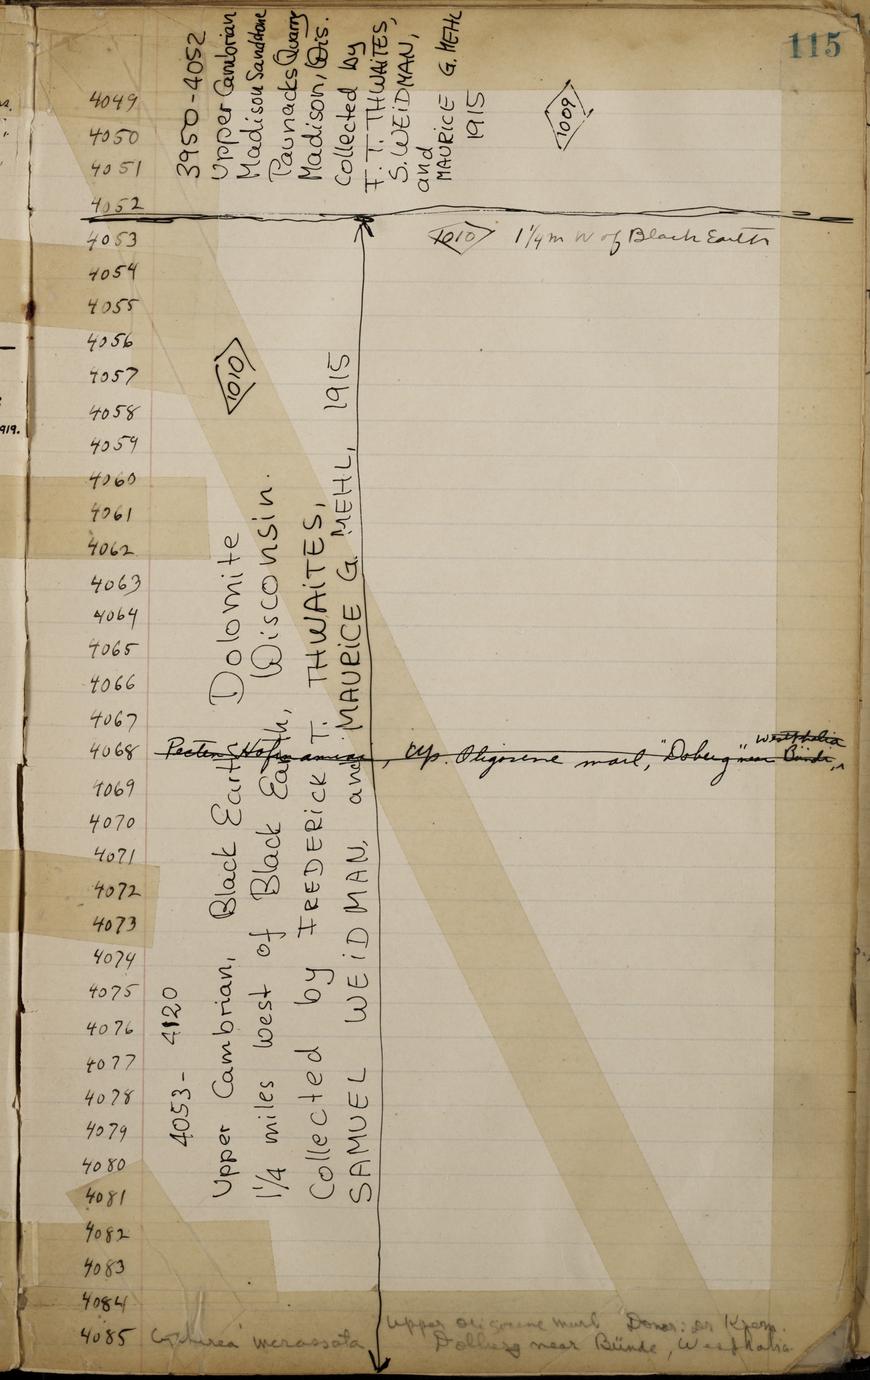 115
3950-4052
Upper Cambrian
Madison Sandstone
Paunacks Quarry
Madison, Wis.
Collected by
F. T. THWAITES,
S. WEIDMAN,
and
MAURICE G. MEHL
1915
1009
4049
4050
4051
4052
4053 1010 1 1/4 m W of Black Earth
4054
4055
4056
4057
4058
4059
4060
4061
4062
4063
4064
4065
4066
4067
4068 Pecten , Up. Oligocene marl, "Doberg" near Bünde, Westphalia
4069
4070
4071
4072
4073
4074
4075
4076
4077
4078
4079
4080
4081
4082
4083
4084
4085 incrassata Upper oligocene marl Donor: Dr
near Bünde, Westphalia.
1010
4053-4120
Upper Cambrian, Black Earth Dolomite
1 1/4 miles West of Black Earth, Wisconsin.
Collected by FREDERICK T. THWAITES,
SAMUEL WEIDMAN, and MAURICE G. MEHL, 1915
919.